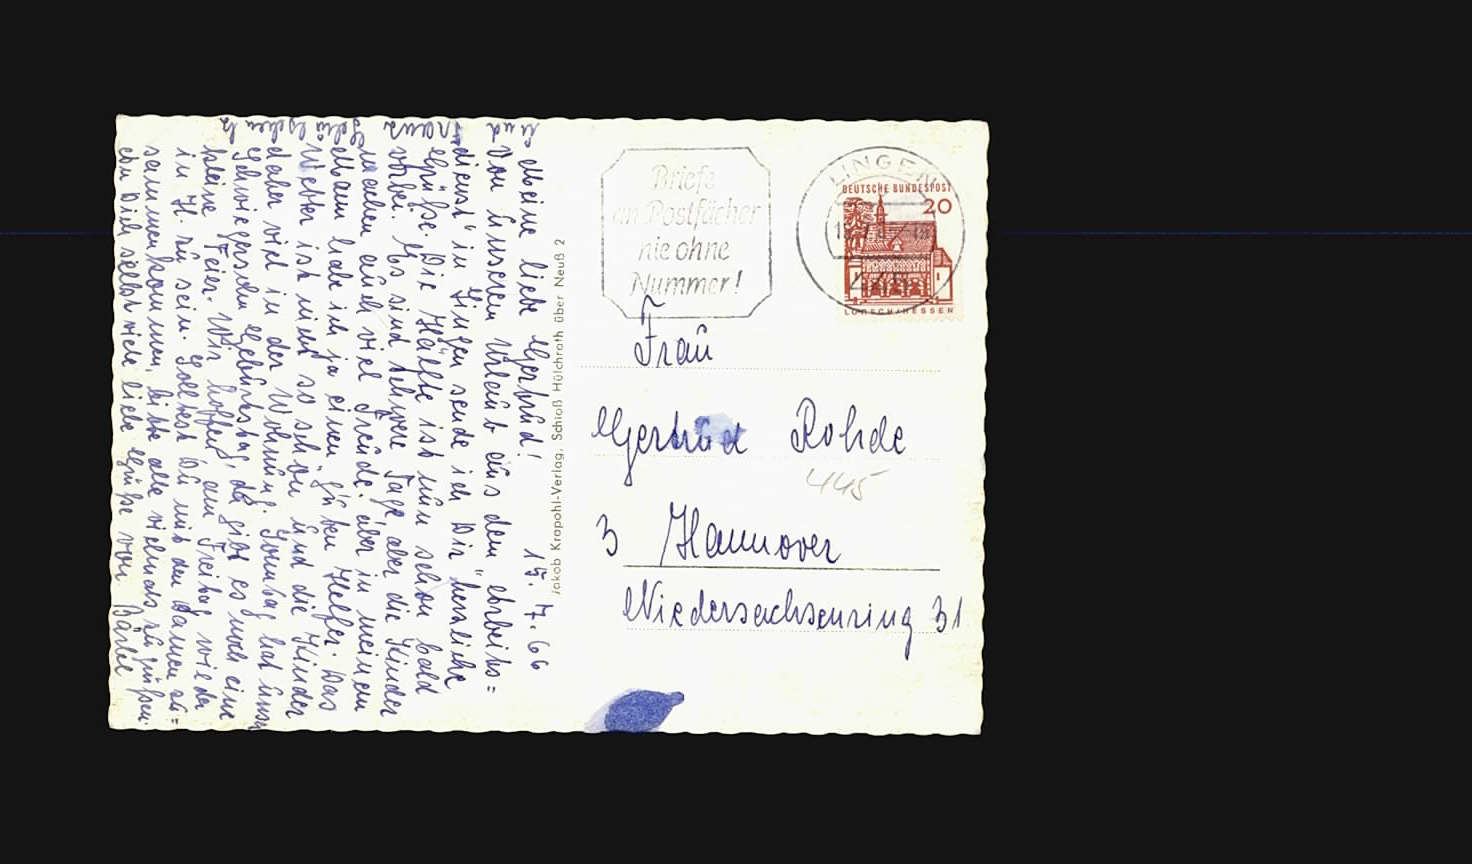 15. 7. 66
Meine liebe Gertrud!
Von unserem Urlaub aus dem „Arbeits=
dienst“ in Lingen sende ich Dir herzliche
Grüße. Die Hälfte ist nun schon bald
vorbei. Es sind schwere Tage, aber die Kinder
machen auch viel Freude. Aber in meinem
Mann habe ich ja einen „guten Helfer. Das
Wetter ist nicht so schön und die Kinder
daher viel in der Wohnung. Sonntag hat unser
Schwiegersohn Geburtstag, da gibt es noch eine
kleine Feier. Wir hoffen, am Freitag wieder
in H. zu sein. Solltest Du mit den Damen zu=
sammenkommen, bitte alle vielmals zu grüßen.
Dich selbst viele liebe Grüße von Bärbel
und
Franz
Jakob Krapohl-Verlag, Schloß Hülchrath über Neuß 2
Briefe
an Postfächer
nie ohne
Nummer!
LINGEN
DEUTSCHE BUNDESPOST
20
LORSCH/HESSEN
Frau
Gertrud Rohde
445
3 Hannover
Niedersachsenring 31